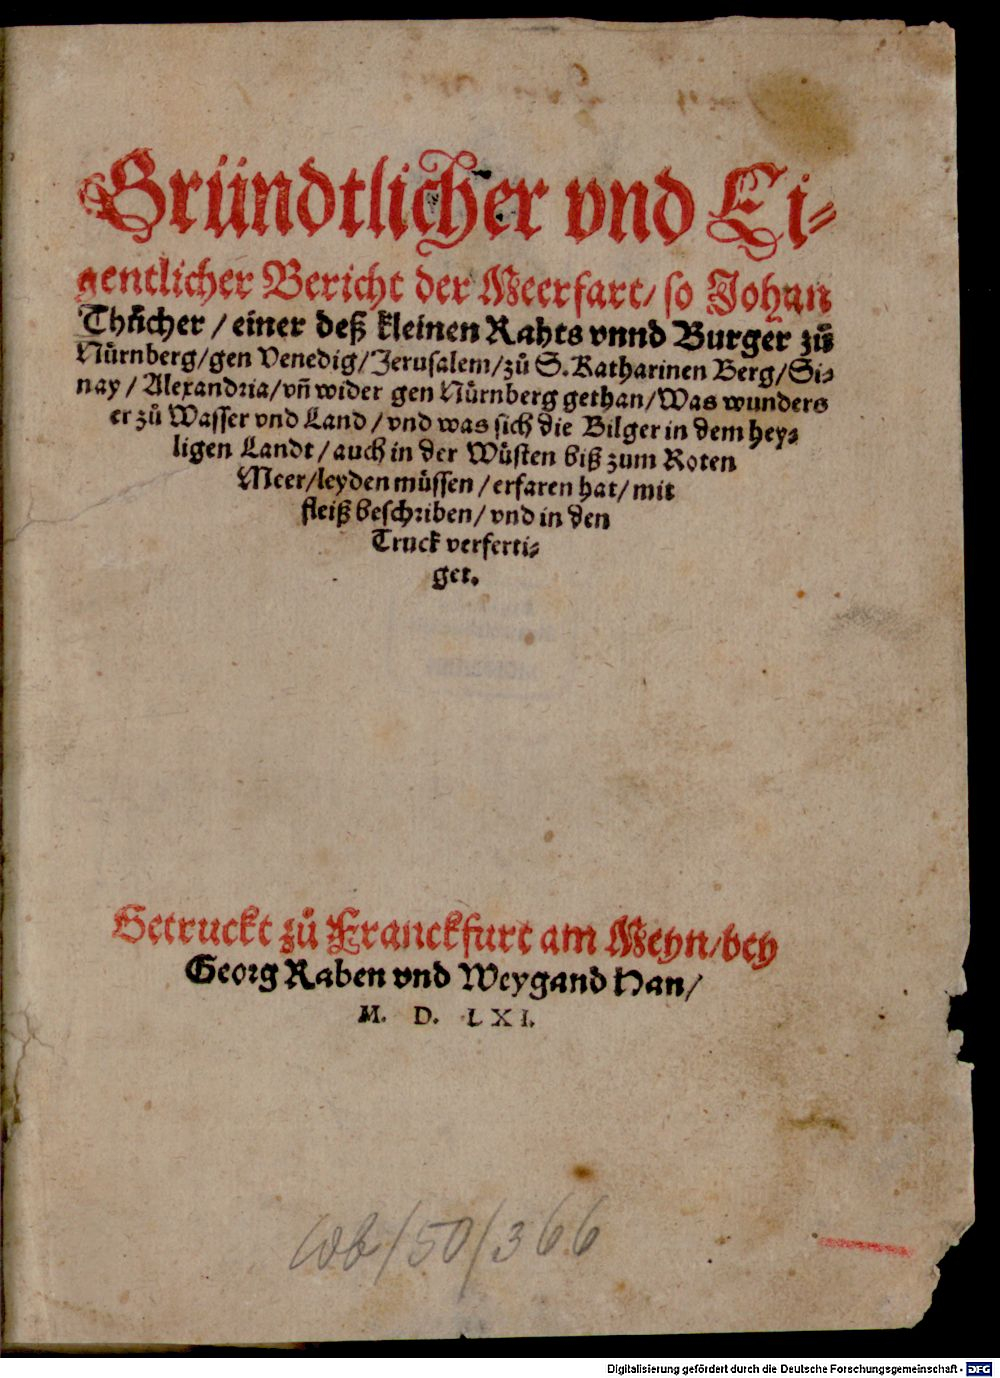 Gründtlicher vnd Ei⸗
gentlicher Bericht der Meerfart/ so Johan
Thůcher / einer deß kleinen Rahts vnnd Burger zů
Nürnberg/gen Venedig/Jerusalem/zů S.Katharinen Berg/Si⸗
nay / Alexandria/vn̄ wider gen Nürnberg gethan/Was wunders
er zů Wasser vnd Land / vnd was sich die Bilger in dem hey⸗
ligen Landt / auch in der Wüsten biß zum Roten
Meer/leyden müssen / erfaren hat/ mit
fleiß beschriben/ vnd in den
Truck verferti⸗
get.
Getruckt zů Franckfurt am Meyn/bey
Georg Raben vnd Weygand Han/
M. D. LXI.
Wb/50/366
Digitalisierung gefördert durch die Deutsche Forschungsgemeinschaft - DFG